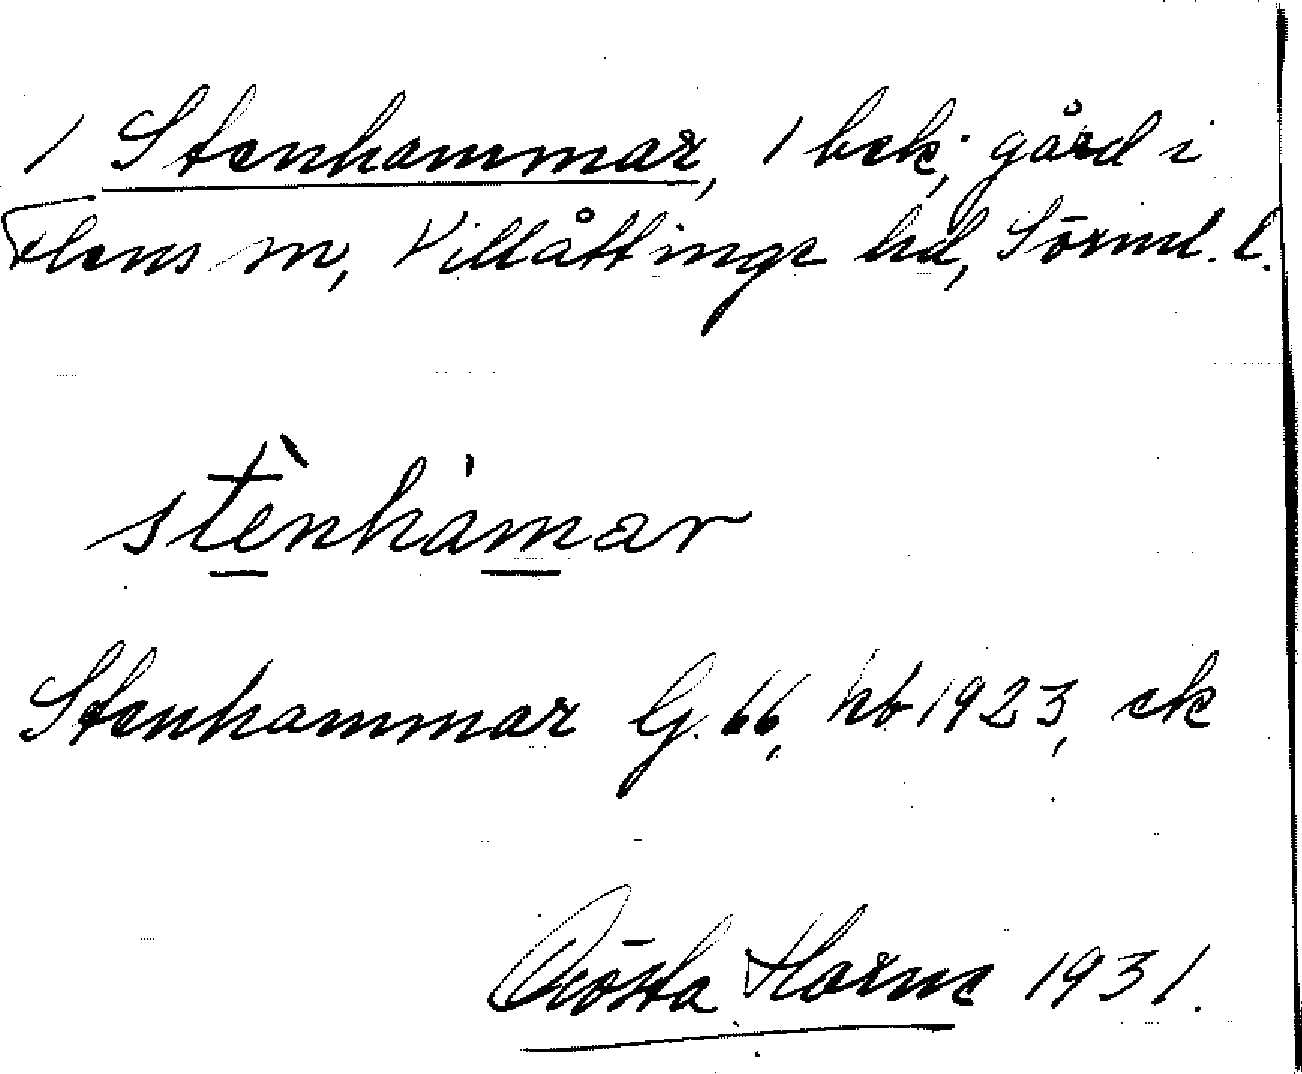 1 Stenhammar, 1 bek. gård i
Flens sn, Villåttinge hd, Sörml. l.
stènhámar
Stenhammar G. 66, kb 1923, ek
Gösta Horne 1931.